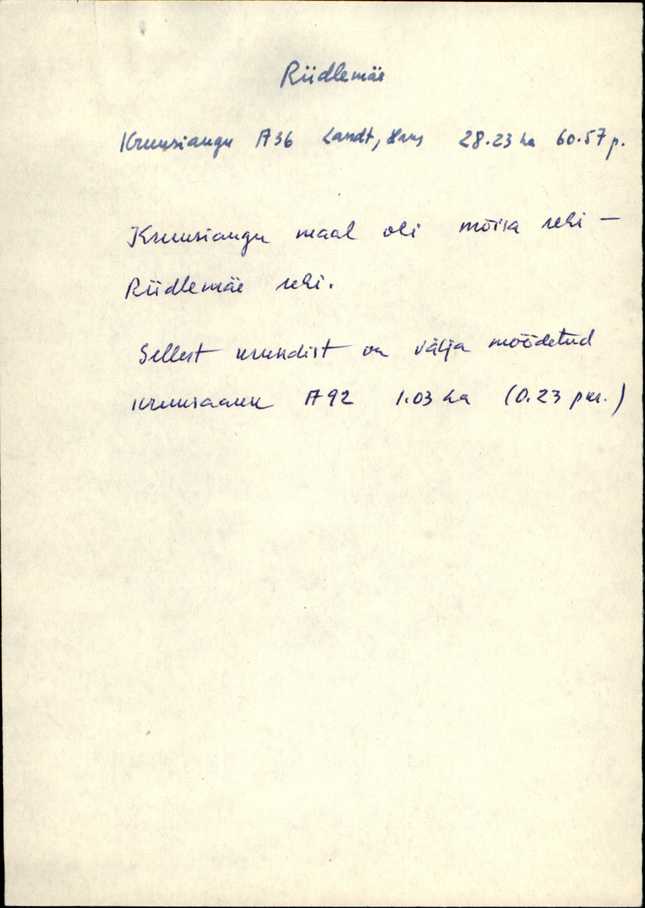 Riidlemäe
Kruusiaugu A36 Landt, Hans 28.23 ha 60.57 p.
Kruusiaugu maal oli mõisa rehi —
Riidlemäe rehi.
Sellest krundist on välja mõõdetud
kruusaauk A92 1.03 ha (0.23 pr.)